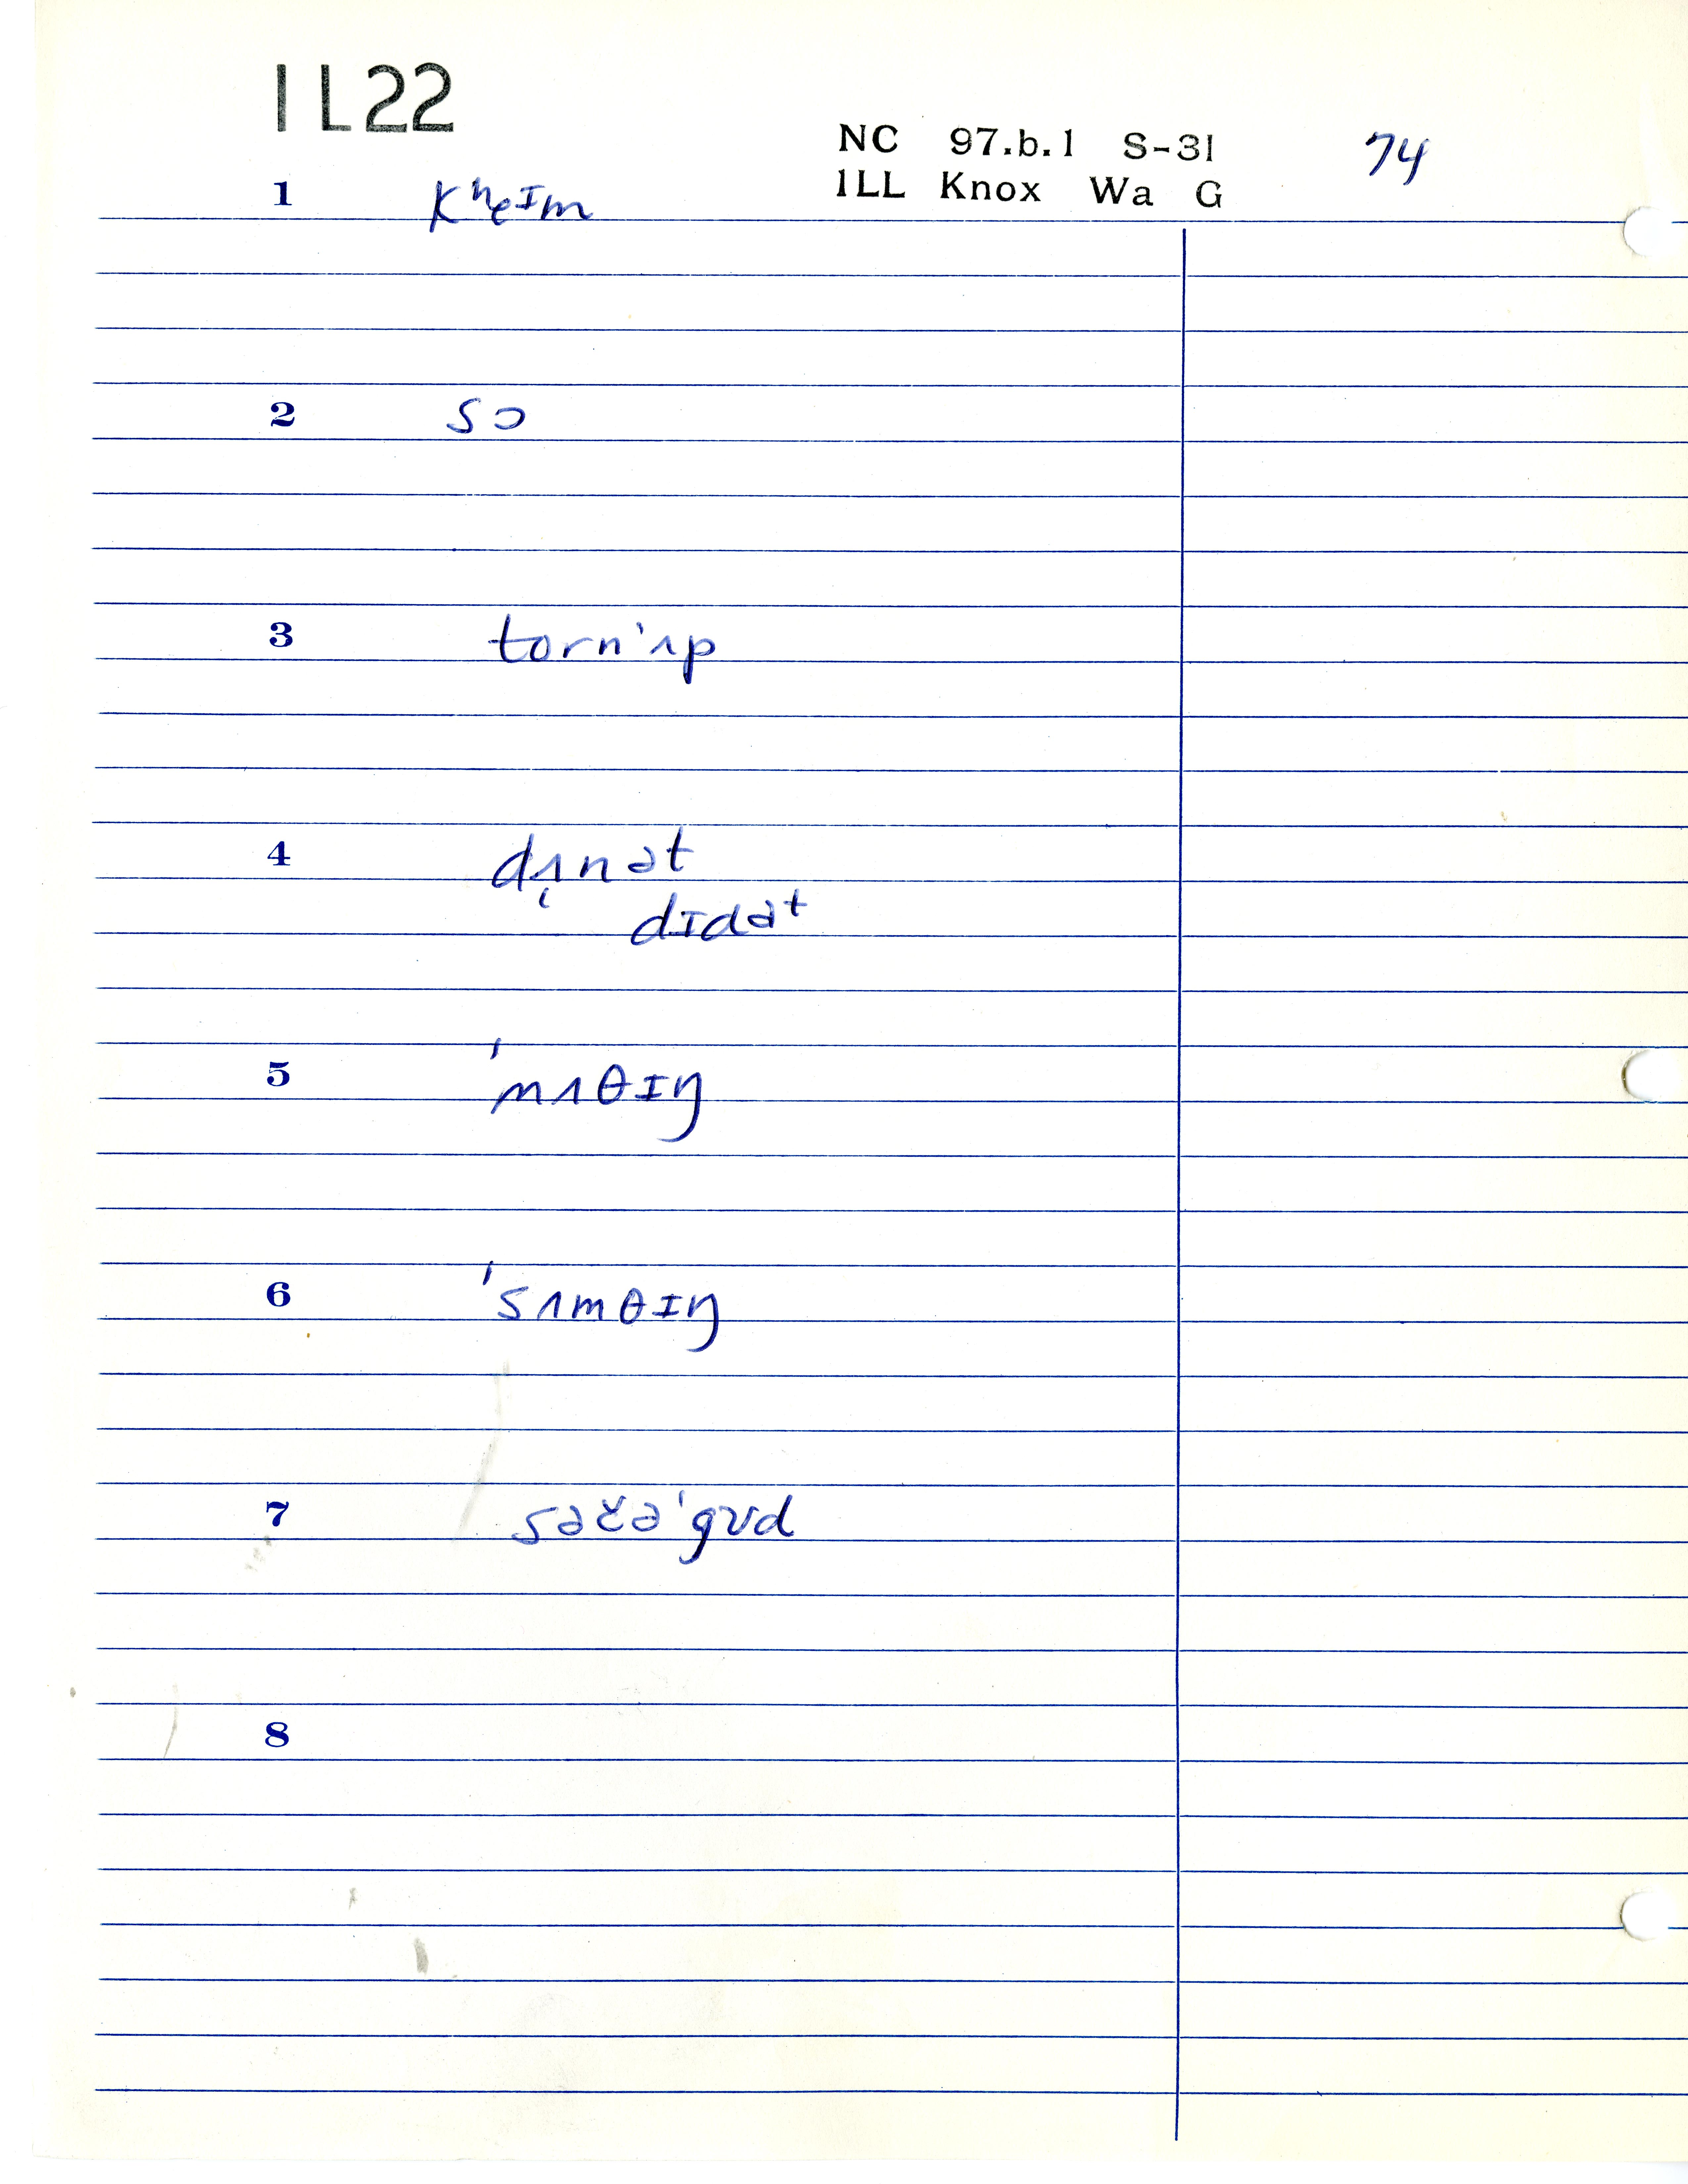 1L22
NC 97.b.1 S-31 74
1LL Knox Wa G
1 kʰeɪm
2 sɔ
3 torn ˈʌp
4 dʌ̨nət
dɪdət
5 ˈnʌθɪŋ
6 ˈsʌmθɪŋ
7 səčə ˈgʊd
8